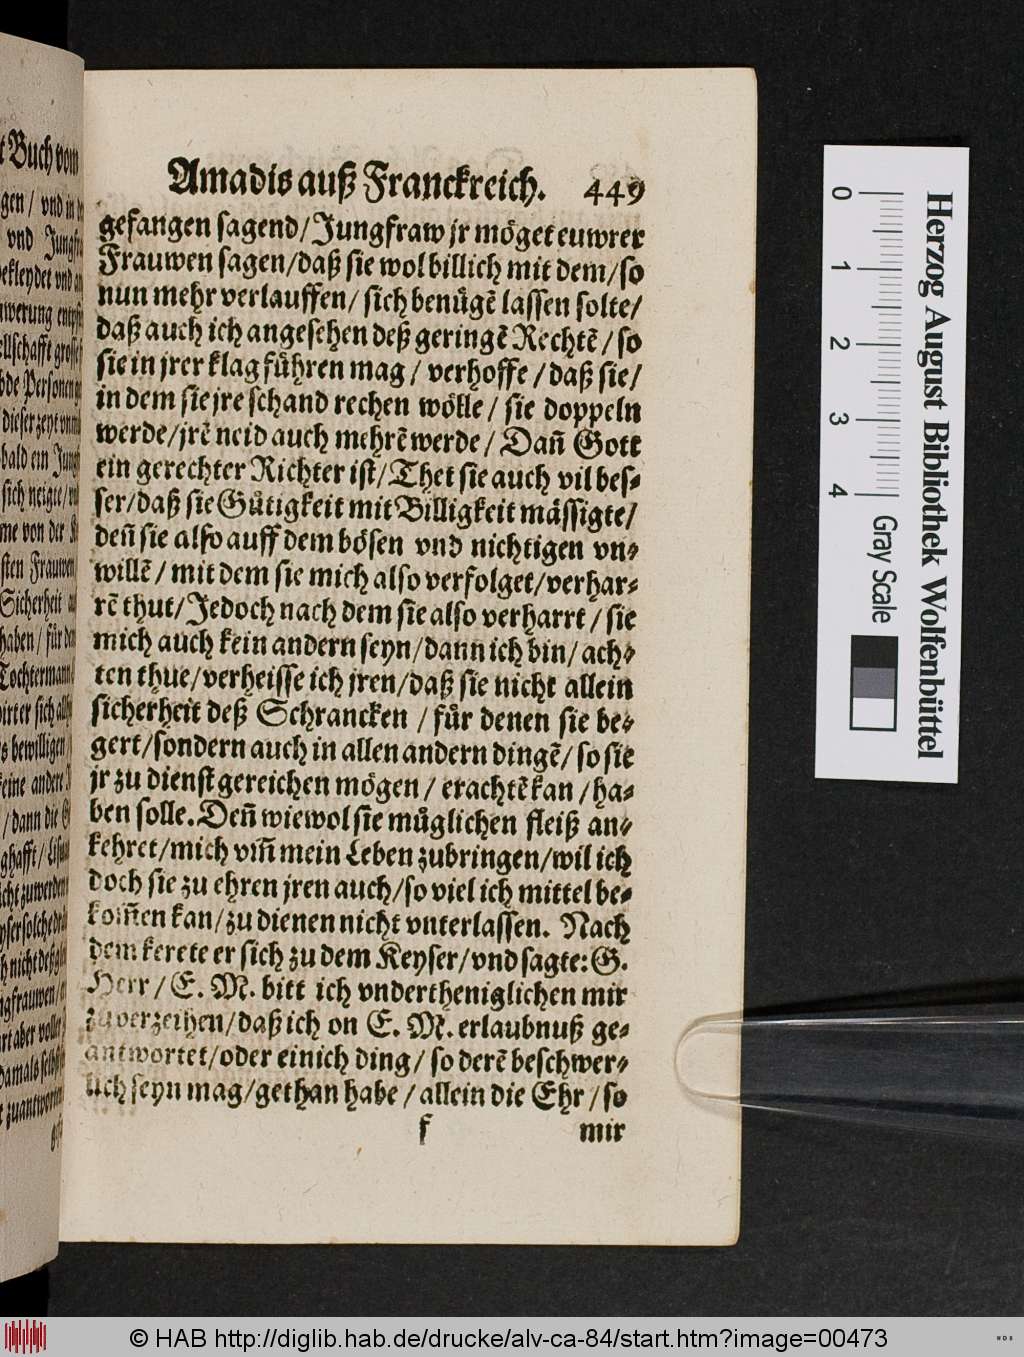 Amadis auß Franckreich. 449
gefangen sagend/Jungfraw jr möget euwrer
Frauwen sagen/daß sie wol billich mit dem/so
nun mehr verlauffen/ sich benügẽ lassen solte/
daß auch ich angesehen deß geringẽ Rechtẽ/so
sie in jrer klag führen mag/ verhoffe/daß sie/
in dem sie jre schand rechen wölle/ sie doppeln
werde/jrẽ neid auch mehrẽ werde/ Dañ Gott
ein gerechter Richter ist/Thet sie auch vil bes-
ser/daß sie Gütigkeit mit Billigkeit mässigte/
deñ sie also auff dem bösen vnd nichtigen vn-
willẽ/ mit dem sie mich also verfolget/verhar-
rẽ thut/Jedoch nach dem sie also verharrt/ sie
mich auch kein andern seyn/dann ich bin/ ach-
ten thue/verheisse ich jren/daß sie nicht allein
sicherheit deß Schrancken / für denen sie be-
gert/sondern auch in allen andern dingẽ/so sie
jr zu dienst gereichen mögen/ erachtẽ kan/ha-
ben solle. Deñ wiewol sie müglichen fleiß an-
kehret/mich vm̃ mein Leben zubringen/wil ich
doch sie zu ehren jren auch/so viel ich mittel be-
kom̃en kan/zu dienen nicht vnterlassen. Nach
dem kerete er sich zu dem Keyser/vnd sagte: G.
Herr/ E. M. bitt ich vndertheniglichen mir
zu verzeihen/daß ich on E. M. erlaubnuß ge-
antwortet/oder einich ding/ so derẽ beschwer-
lich seyn mag/gethan habe/ allein die Ehr/so
f mir
t Buch vom
Herzog August Bibliothek Wolfenbüttel
0 1 2 3 4
Gray Scale
© HAB http://diglib.hab.de/drucke/alv-ca-84/start.htm?image=00473